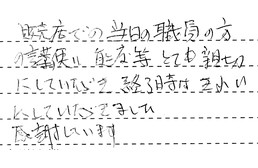 販売店での当日の職員の方
の言葉使い 等 とても親切
にしていただき 終了時はきれい
にしていただきました
感謝しています